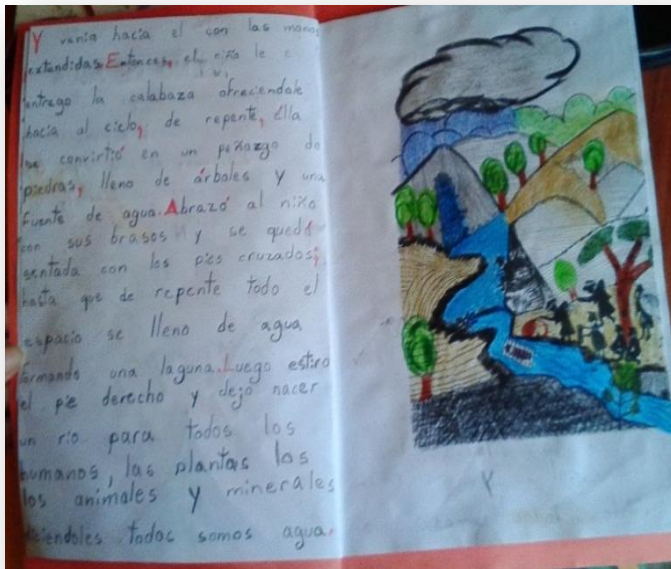 Y venia hacia el con las manos
extendidas. Entonces, el niño le
entrego la calabaza ofreciendole
hacia al cielo, de repente, élla
se convirtió en un peñazgo de
piedras, lleno de árboles y una
fuente de agua. Abrazó al niño
con sus brasos y se quedó
sentada con los pies cruzados;
hasta que de repente todo el
espacio se lleno de agua
formando una laguna. Luego estiro
el pie derecho y dejo nacer
un rio para todos los
humanos, las plantas las
los animales y minerales
diciendoles todos somos agua.